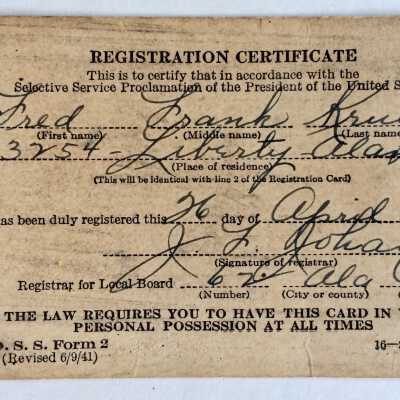 REGISTRATION CERTIFICATE
This is to certify that in accordance with the
Selective Service Proclamation of the President of the United S
Fred Frank Kru
(First name) (Middle name) (Last name
3254 - Liberty Ala
(Place of residence)
(This will be identical with line 2 of the Registration Card)
as been duly registered this 26 day of April
J. F.
(Signature of registrar)
Registrar for Local Board 62 Ala
(Number) (City or county) (
THE LAW REQUIRES YOU TO HAVE THIS CARD IN
PERSONAL POSSESSION AT ALL TIMES
. S. S. Form 2
(Revised 6/9/41) 16—